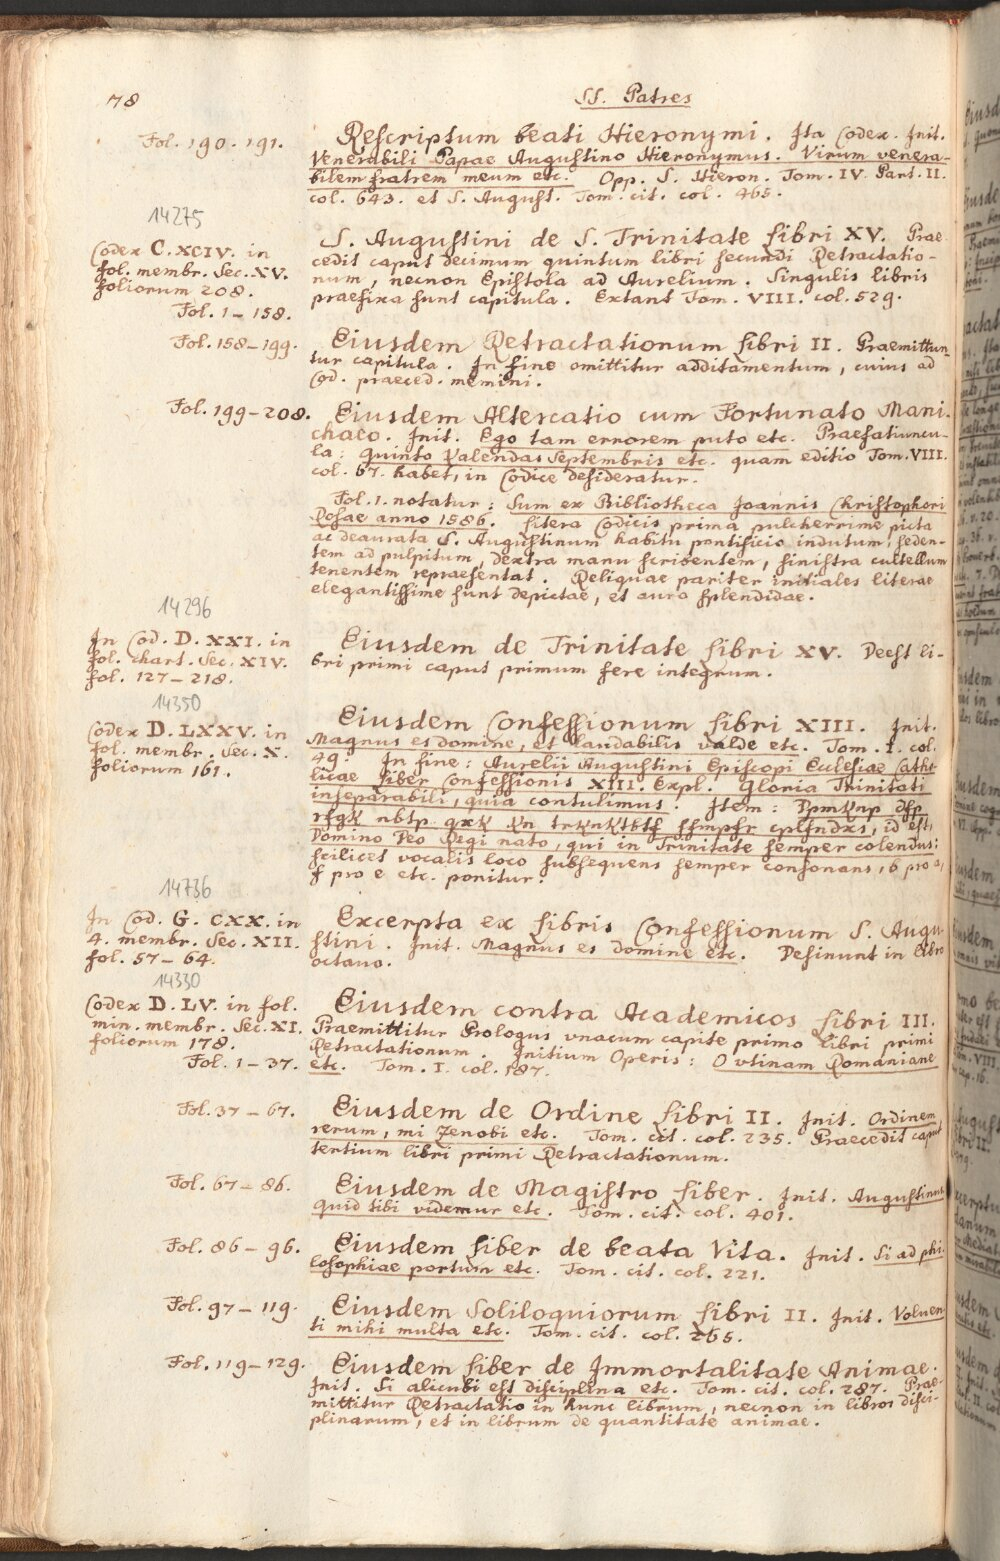 78
SS. Patres
Fol. 190. 191.
Rescriptum beati Hieronymi. Ita Codex. Init.
Venerabili Papae Augustino Hieronymus. Virum venera-
bilem fratrem meum etc. Opp. S. Hieron. Tom. IV. Part. II.
col. 643. et S. August. Tom. cit. col. 465.
14275
Codex C. XCIV. in
fol. membr. Sec. XV.
foliorum 208.
Fol. 1-158.
S. Augustini de S. Trinitate Libri XV. Prae
cedit caput decimum quintum libri secundi Retractatio-
num, necnon Epistola ad Aurelium. Singulis libris
praefixa sunt capitula. Extant Tom. VIII. col. 529.
Fol. 158-199.
Eiusdem Retractationum Libri II. Praemittun
tur capitula. In fine omittitur additamentum, cuius ad
Cod. praeced. memini.
Fol. 199-208.
Eiusdem Altercatio cum Fortunato Mani-
chaeo. Init. Ego tam errorem puto etc. Praefatiuncu-
la: Quinto Kalendas Septembris etc. quam editio Tom. VIII.
col. 67. habet, in Codice desideratur.
Fol. 1. notatur: Sum ex Bibliotheca Joannis Christophori
Dosae anno 1586. Litera Codicis prima pulcherrime picta
ac deaurata S. Augustinum habitu pontificio indutum, seden-
tem ad pulpitum, dextra manu scribentem, sinistra cultellum
tenentem repraesentat. Reliquae pariter initiales literae
elegantissime sunt depictae, et auro splendidae.
14296
In Cod. D. XXI. in
fol. chart. Sec. XIV.
fol. 127-218.
Eiusdem de Trinitate Libri XV. Deest li-
bri primi caput primum fere integrum.
14350
Codex D. LXXV. in
fol. membr. Sec. X.
foliorum 161.
Eiusdem Confessionum Libri XIII. Init.
Magnus es domine, et laudabilis valde etc. Tom. I. col.
49. In fine: Aurelii Augustini Episcopi Ecclesiae Catho
licae Liber Confessionis XIII. Expl. Gloria Trinitati
inseparabili, quia contulimus. Item: Dpmknp dfp
rfgk nbtp qxk kn trknktbtf sfmpfr cplfndxs, id est,
Domino Deo Regi nato, qui in Trinitate semper colendus:
scilicet vocalis loco subsequens semper consonans, b pro a,
f pro e etc. ponitur.
14736
In Cod. G. CXX. in
4. membr. Sec. XII.
fol. 57-64.
Excerpta ex Libris Confessionum S. Augu
stini. Init. Magnus es domine etc. Desinunt in libro
octavo.
14330
Codex D. LV. in fol.
min. membr. Sec. XI.
foliorum 178.
Fol. 1-37.
Eiusdem contra Academicos Libri III.
Praemittitur Prologus vnacum capite primo libri primi
Retractationum. Initium Operis: O vtinam Romaniane
etc. Tom. I. col. 187.
Fol. 37-67.
Eiusdem de Ordine Libri II. Init. Ordinem
rerum, mi Zenobi etc. Tom. cit. col. 235. Praecedit caput
tertium libri primi Retractationum.
Fol. 67-86.
Eiusdem de Magistro Liber. Init. Augustinus
quid tibi videmur etc. Tom. cit. col. 401.
Fol. 86-96.
Eiusdem Liber de beata Vita. Init. Si ad phi-
losophiae portum etc. Tom. cit. col. 221.
Fol. 97-119.
Eiusdem Soliloquiorum Libri II. Init. Voluen
ti mihi multa etc. Tom. cit. col. 265.
Fol. 119-129.
Eiusdem Liber de Immortalitate Animae.
Init. Si alicubi est disciplina etc. Tom. cit. col. 287. Prae-
mittitur Retractatio in hunc librum, necnon in libros disci-
plinarum, et in librum de quantitate animae.